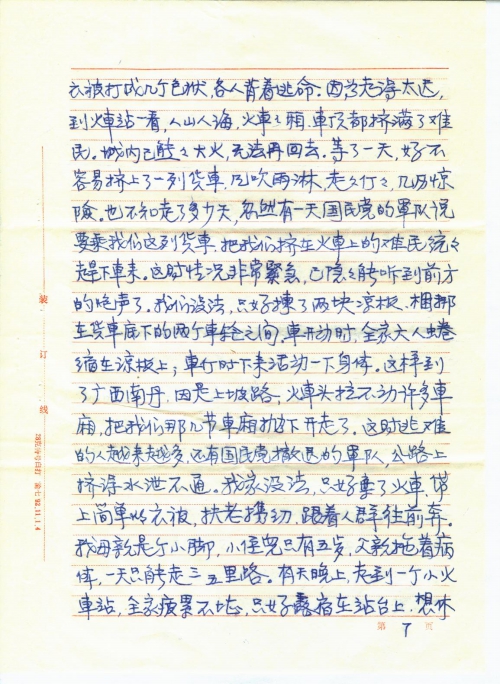 衣被打成几个包袱，各人背着逃命．因为走得太迟，
到火車站一看，人山人海，火車之厢、車頂都挤滿了难
民。城内已熊々大火，无法再回去。等了一天，好不
容易挤上了一列货車，风吹雨淋，走々行々，几历惊
險。也不知走了多少天，忽然有一天国民党的軍队说
要乘我们这列货車，把我们挤在火車上的难民統々
趕下車来。这时情况非常緊急，已隐々能听到前方
的炮声了。我们没法，只好揀了两块凉板、梱绑
在货車底下的两个車轮之间，車开动时，全家大人蜷
缩在凉板上；車行时下来活动一下身体。这样到
了广西南丹，因是上坡路，火車头拉不动许多車
厢，把我们那几节車厢抛下开走了。这时逃难
的人越来越多，还有国民党撤退的軍队，公路上
挤得水泄不通。我家没法，只好棄了火車，带
上简单的衣被，扶老携幼，跟着人群往前奔。
我母親是个小脚，小侄兒只有五岁，父親拖着病
体，一天只能走三五里路。有天晚上，走到一个小火
車站，全家疲累不堪，只好露宿在站台上．想休
装订线
第 7 页